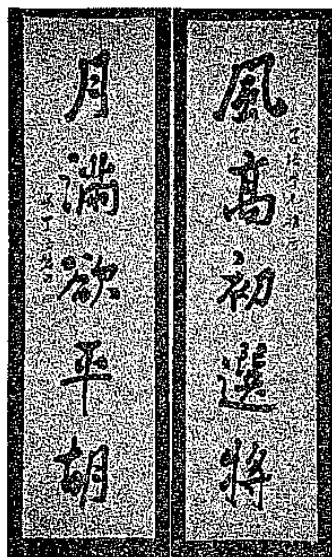 風高初選將
月滿欲平胡